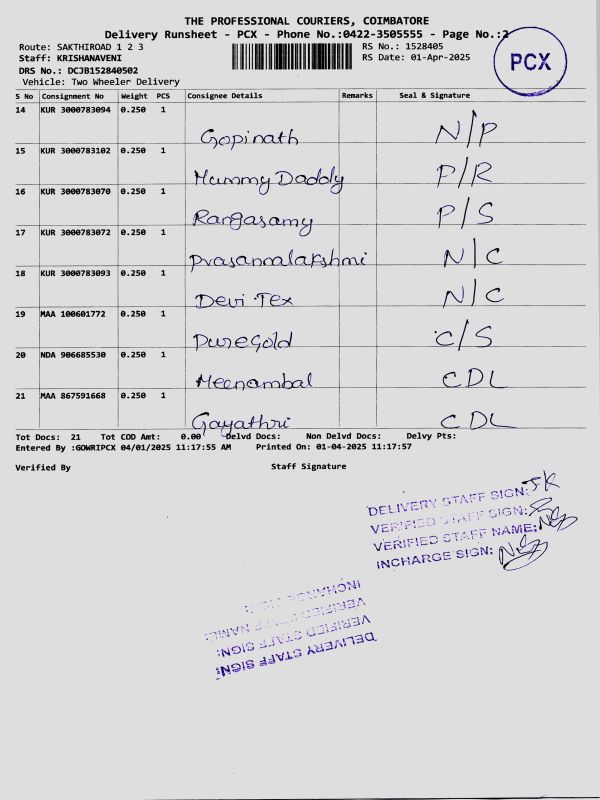 THE PROFESSIONAL COURIERS, COIMBATORE
Delivery Runsheet - PCX - Phone No.:0422-3505555 - Page No.:2
Route: SAKTHIROAD 1 2 3
RS No.: 1528405
Staff: KRISHANAVENI
RS Date: 01-Apr-2025
PCX
DRS No.: DCJB152840502
Vehicle: Two Wheeler Delivery
S No Consignment No Weight PCS Consignee Details Remarks Seal & Signature
14 KUR 3000783094 0.250 1
Gopinath N/P
15 KUR 3000783102 0.250 1
Mummy Daddy P/R
16 KUR 3000783070 0.250 1
Rangasamy P/S
17 KUR 3000783072 0.250 1
Prasannalakshmi N/C
18 KUR 3000783093 0.250 1
Devi Tex N/C
19 MAA 100601772 0.250 1
Puregold C/S
20 NDA 906685530 0.250 1
Meenambal CDL
21 MAA 867591668 0.250 1
Gayathri CDL
Tot Docs: 21 Tot COD Amt: 0.00 Delvd Docs: Non Delvd Docs: Delvy Pts:
Entered By :GOWRIPCX 04/01/2025 11:17:55 AM Printed On: 01-04-2025 11:17:57
Verified By Staff Signature
DELIVERY STAFF SIGN:
VERIFIED STAFF SIGN:
VERIFIED STAFF NAME:
INCHARGE SIGN:
DELIVERY STAFF SIGN:
VERIFIED STAFF SIGN:
VERIFIED STAFF NAME:
INCHARGE SIGN: